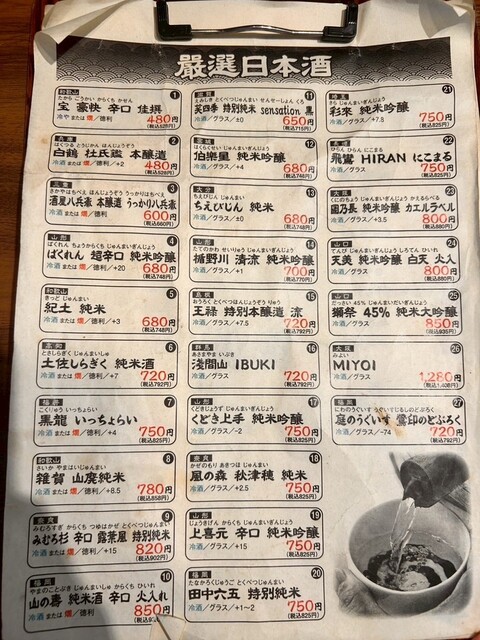 嚴選日本酒
和歌山 1
たから ごうかい からくち かせん
宝 豪快 辛口 佳撰
冷や または 燗/徳利 480円
(税込528円)
兵庫 2
はくつる とうじかん ほんじょうぞう
白鶴 杜氏鑑 本醸造
冷酒 または 燗/+2 480円
(税込528円)
三重 3
さかやはちべえ ほんじょうぞう うっかりはちべえ
酒屋八兵衛 本醸造 うっかり八兵衛
冷酒 または 燗/徳利 600円
(税込660円)
山形 4
ばくれん ちょうからくち じゅんまいぎんじょう
ばくれん 超辛口 純米吟醸
冷酒 または 燗/+20 680円
(税込748円)
和歌山 5
きっど じゅんまい
紀土 純米
冷酒 または 燗/徳利/+3 680円
(税込748円)
高知 6
とさしらぎく じゅんまいしゅ
土佐しらぎく 純米酒
冷酒 または 燗/徳利/+7 720円
(税込792円)
福井 7
こくりゅう いっちょらい
黒龍 いっちょらい
冷酒 または 燗/徳利/+4 750円
(税込825円)
和歌山 8
さいか やまはいじゅんまい
雑賀 山廃純米
冷酒 または 燗/徳利/+8.5 780円
(税込858円)
奈良 9
みむろすぎ からくち つゆはかぜ とくべつじゅんまい
みむろ杉 辛口 露葉風 特別純米
冷酒 または 燗/徳利 +15 820円
(税込902円)
福岡 10
やまのことぶき じゅんまいしゅ からくち ひいれ
山の壽 純米酒 辛口 火入れ
冷酒 または 燗/徳利 850円
滋賀 11
えみしき とくべつじゅんまい せんせーしょん くろ
笑四季 特別純米 sensation 黒
冷酒/グラス/±0 650円
(税込715円)
宮城 12
はくらくせい じゅんまいぎんじょう
伯樂星 純米吟醸
冷酒/グラス/+4 680円
(税込748円)
大分 13
ちえびじん じゅんまい
ちえびじん 純米
冷酒/グラス/±0 680円
(税込748円)
山形 14
たてのかわ せいりゅう じゅんまいぎんじょう
楯野川 清流 純米吟醸
冷酒/グラス/±1 700円
(税込770円)
島根 15
おうろく とくべつほんじょうぞう りょう
王祿 特別本醸造 涼
冷酒/グラス/+7.5 720円
(税込792円)
群馬 16
あさまやま いぶき
浅間山 IBUKI
冷酒/グラス 720円
(税込792円)
山形 17
くどきじょうず じゅんまいぎんじょう
くどき上手 純米吟醸
冷酒/グラス/-2 750円
(税込825円)
奈良 18
かぜのもり あきつほ じゅんまい
風の森 秋津穂 純米
冷酒/グラス/+2.5 750円
(税込825円)
山形 19
じょうきげん からくち じゅんまいぎんじょう
上喜元 辛口 純米吟醸
冷酒/グラス/+15 750円
(税込825円)
福岡 20
たなかろくじゅうご とくべつじゅんまい
田中六五 特別純米
冷酒/グラス/+1〜2 750円
(税込825円)
埼玉 21
さいらい じゅんまいぎんじょう
彩來 純米吟醸
冷酒/グラス/+7.8 750円
(税込825円)
長崎 22
ひらん ひらん にこまる
飛鸞 HIRAN にこまる
冷酒/グラス 750円
(税込825円)
大阪 23
くにのちょう じゅんまいぎんじょう かえるらべる
國乃長 純米吟醸 カエルラベル
冷酒/グラス/+3.5 800円
(税込880円)
山口 24
てんび じゅんまいぎんじょう しろてん ひいれ
天美 純米吟醸 白天 火入
冷酒/グラス 800円
(税込880円)
山口 25
だっさい 45% じゅんまいだいぎんじょう
獺祭 45% 純米大吟醸
冷酒/グラス 850円
(税込935円)
大阪 26
みよい
MIYOI
冷酒/グラス 1,280円
(税込1,408円)
福岡 27
にわのうぐいす うぐいすじるしのどぶろく
庭のうぐいす 鶯印のどぶろく
冷酒/グラス/-74 720円
(税込792円)